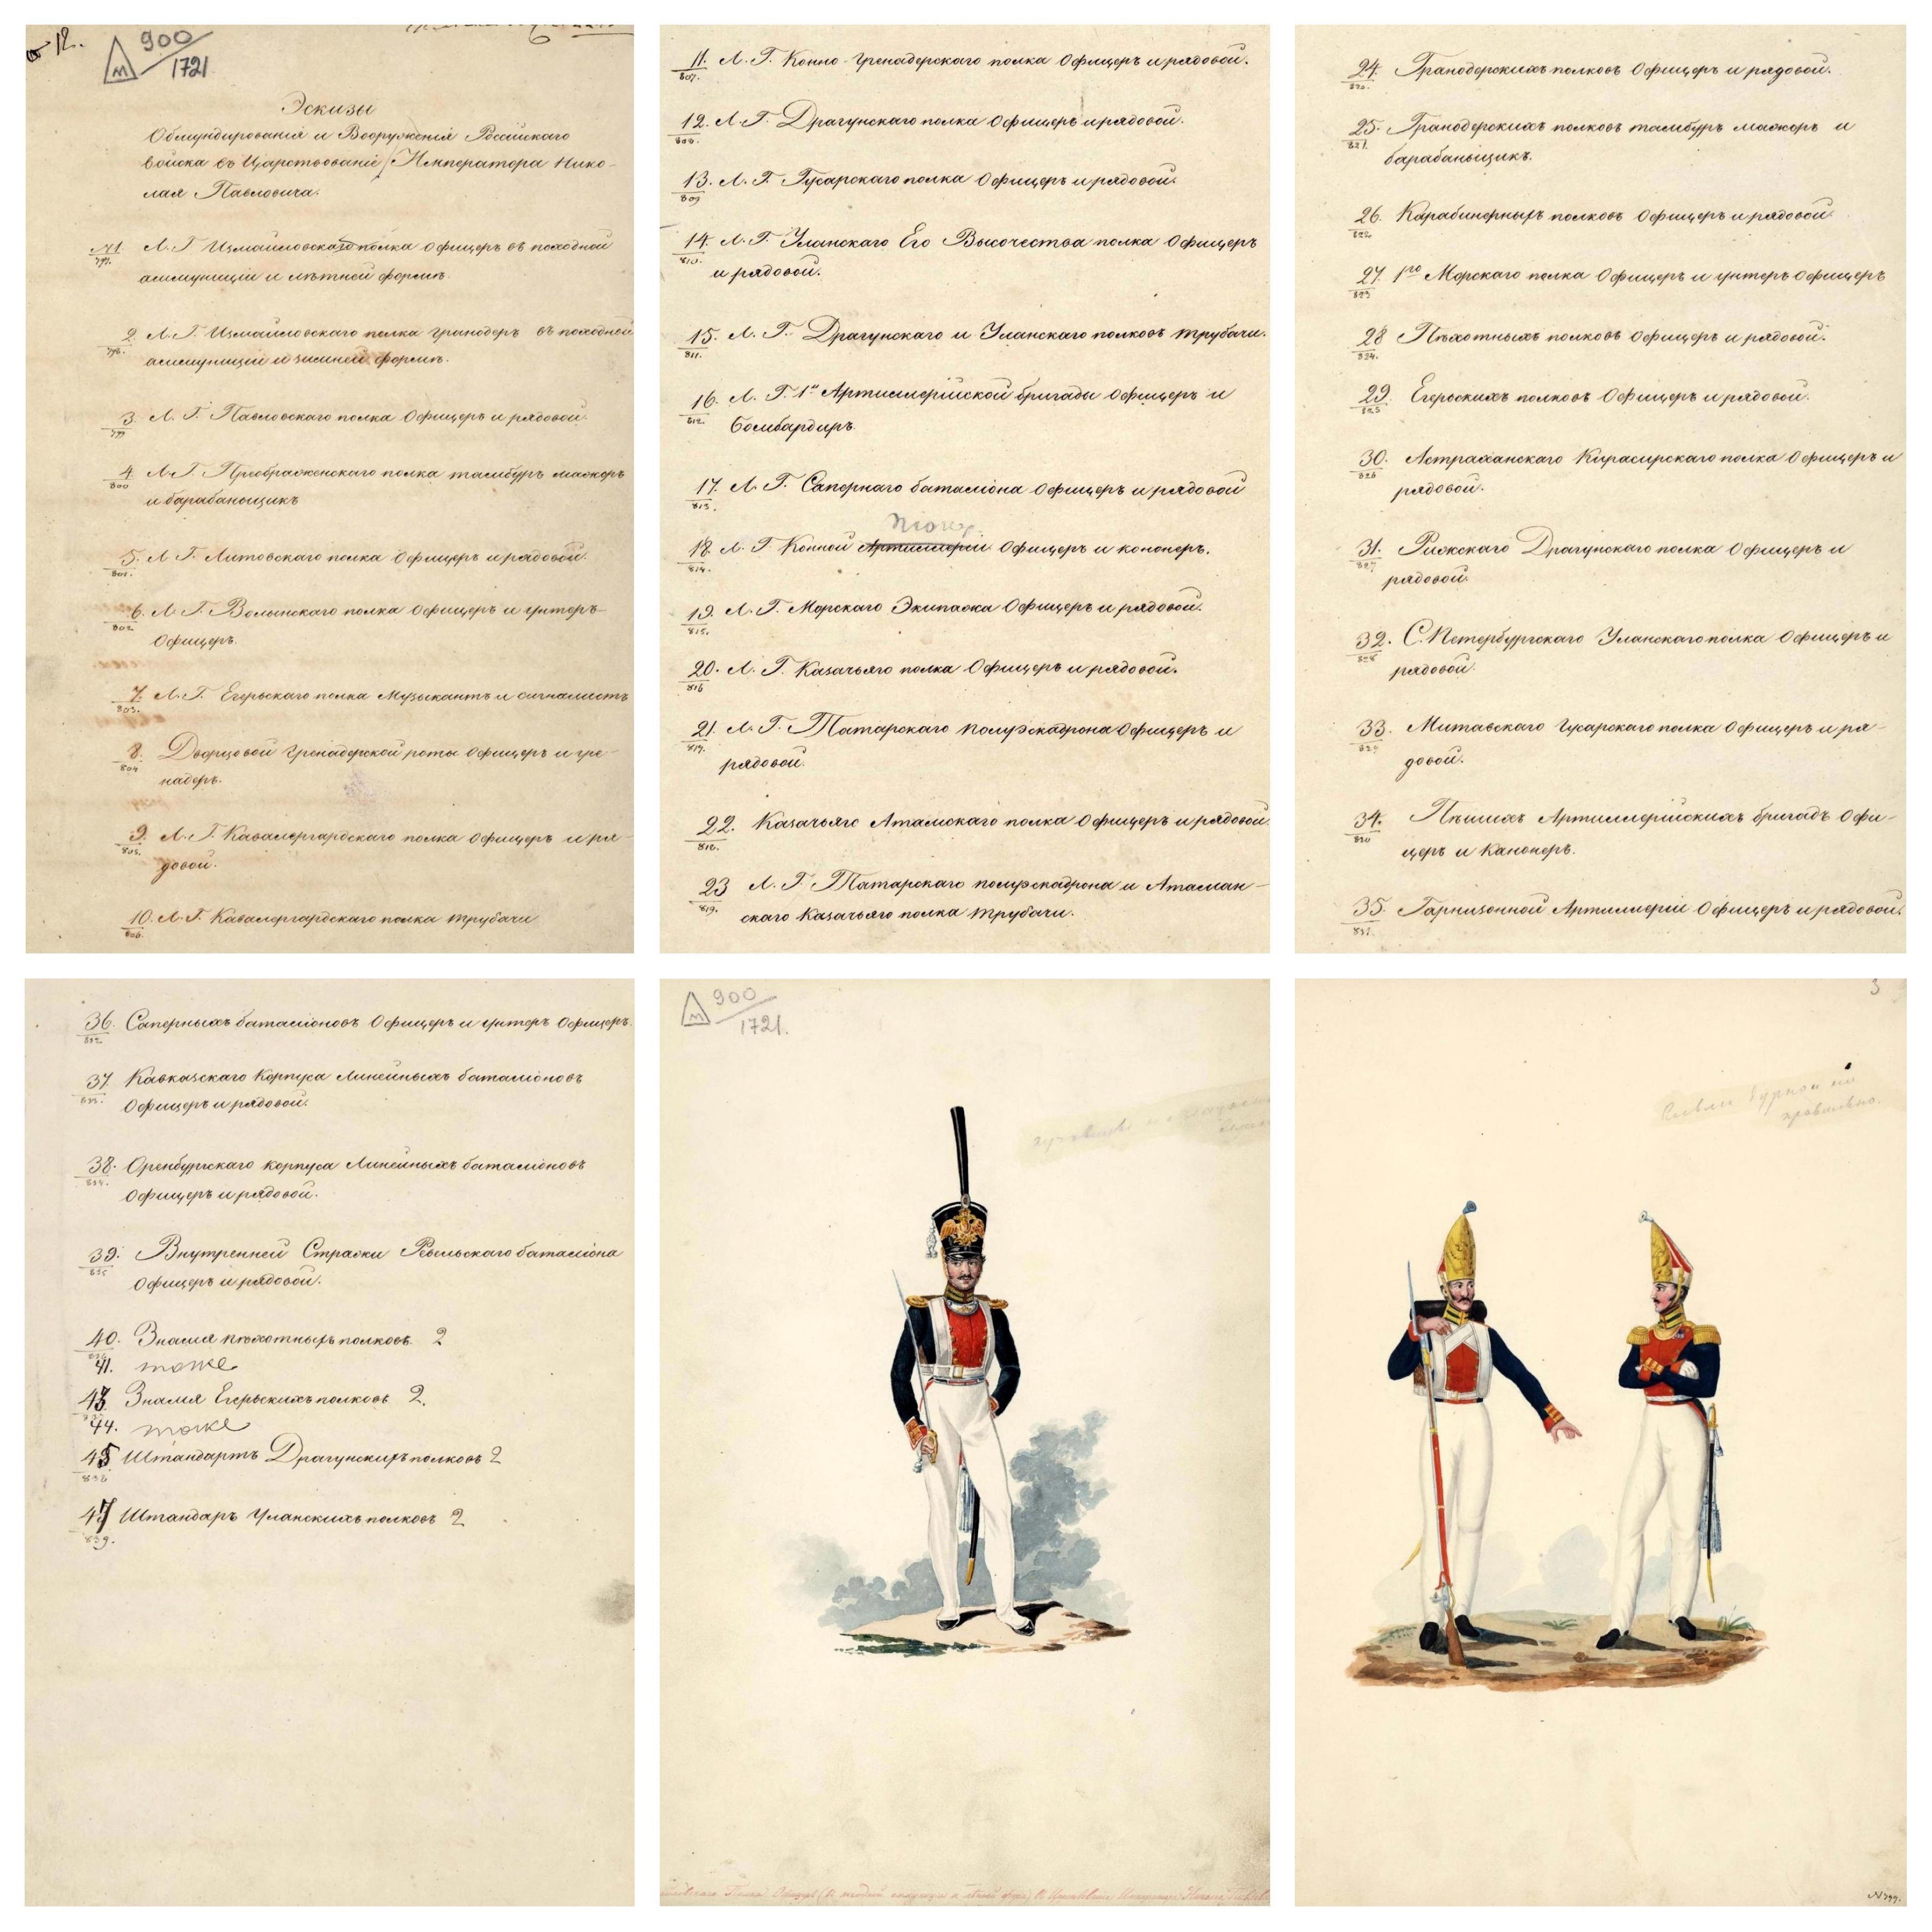 12.
М 900/1721
Эскизы
Обмундированія и Вооруженія Россійскаго
войска въ Царствованіе Императора Нико-
лая Павловича.
№1. Л. Г. Измайловскаго полка Офицеръ въ походной
797.
аммуниціи и лѣтней формѣ.
2. Л. Г. Измайловскаго полка гранодеръ въ походной
798.
аммуниціи и зимней формѣ.
3. Л. Г. Павловскаго полка Офицеръ и рядовой.
799
4. Л. Г. Преображенскаго полка тамбуръ мажоръ
800
и барабаньщикъ
5. Л. Г. Литовскаго полка Офицеръ и рядовой.
801.
6. Л. Г. Волынскаго полка Офицеръ и унтеръ-
802
Офицеръ.
7. Л. Г. Егерьскаго полка Музыкантъ и сигналистъ
803.
8. Дворцовой Гренадерской роты Офицеръ и гре-
804
надеръ.
9. Л. Г. Кавалергардскаго полка Офицеръ и ря-
805.
довой.
10. Л. Г. Кавалергардскаго полка трубачи
806.
11. Л. Г. Конно-Гренадерскаго полка Офицеръ и рядовой.
807.
12. Л. Г. Драгунскаго полка Офицеръ и рядовой.
808.
13. Л. Г. Гусарскаго полка Офицеръ и рядовой.
809
14. Л. Г. Уланскаго Его Высочества полка Офицеръ
810.
и рядовой.
15. Л. Г. Драгунскаго и Уланскаго полковъ трубачи.
811.
16. Л. Г. 1й Артиллерійской бригады Офицеръ и
812.
Бомбардиръ.
17. Л. Г. Сапернаго баталіона Офицеръ и рядовой
813.
Піонер.
18. Л. Г. Конной Артиллеріи Офицеръ и кононеръ.
814.
19. Л. Г. Морскаго Экипажа Офицеръ и рядовой.
815.
20. Л. Г. Казачьяго полка Офицеръ и рядовой.
816
21. Л. Г. Татарскаго полуэскадрона Офицеръ и
817.
рядовой.
22. Казачьяго Атамскаго полка Офицеръ и рядовой.
818.
23 Л. Г. Татарскаго полуэскадрона и Атаман-
819.
скаго Казачьяго полка трубачи.
24. Гранодерскихъ полковъ Офицеръ и рядовой.
820.
25. Гранодерскихъ полковъ тамбуръ мажоръ и
821.
барабаньщикъ.
26. Карабинерныхъ полковъ Офицеръ и рядовой.
822
27. 1го Морскаго полка Офицеръ и унтеръ Офицеръ
823
28 Пѣхотныхъ полковъ Офицеръ и рядовой.
824.
29. Егерьскихъ полковъ Офицеръ и рядовой.
825
30. Астраханскаго Кирасирскаго полка Офицеръ и
826
рядовой.
31. Рижскаго Драгунскаго полка Офицеръ и
827
рядовой.
32. С. Петербургскаго Уланскаго полка Офицеръ и
828
рядовой.
33. Митавскаго Гусарскаго полка Офицеръ и ря-
829
довой.
34. Пѣшихъ Артиллерійскихъ бригадъ Офи-
830
церъ и Канонеръ.
35. Гарнизонной Артиллеріи Офицеръ и рядовой.
831.
36. Саперныхъ баталіоновъ Офицеръ и унтеръ Офицеръ.
832
37. Кавказскаго Корпуса Линейныхъ баталіоновъ
833.
Офицеръ и рядовой.
38. Оренбургскаго корпуса Линейныхъ баталіоновъ
834.
Офицеръ и рядовой.
39. Внутренней Стражи Ревельскаго баталіона
835
Офицеръ и рядовой.
40. Знамя пѣхотныхъ полковъ. 2
836
41. тоже
43. Знамя Егерьскихъ полковъ 2.
44. тоже
45 Штандартъ Драгунскихъ полковъ 2
838
47 Штандаръ Уланскихъ полковъ 2
839.
М 900/1721.
Полка Офицеръ (въ походной аммуниціи и лѣтней формѣ) Въ Царствованіе Императора Николая
3
№799.